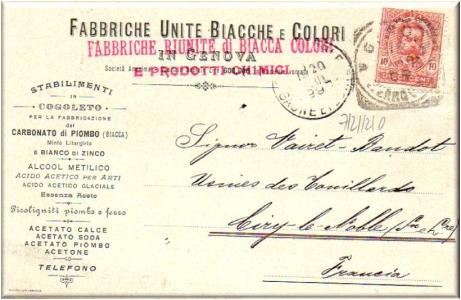 FABBRICHE UNITE BIACCHE E COLORI
FABBRICHE RIUNITE di BIACCA COLORI
IN GENOVA
E PRODOTTI CHIMICI
Società
STABILIMENTI
in
COGOLETO
PER LA FABBRICAZIONE
del
CARBONATO di PIOMBO (BIACCA)
Minio Litargirio
e BIANCO DI ZINCO
ALCOOL METILICO
ACIDO ACETICO PER ARTI
ACIDO ACETICO GLACIALE
Essenza Aceto
Piroligniti piombo e ferro
ACETATO CALCE
ACETATO SODA
ACETATO PIOMBO
ACETONE
TELEFONO
20
99
10 10
7/2/210
Signor Vairet-Baudot
Usines des Touillards
Ciry-le-Noble (Sne et Lre)
Francia